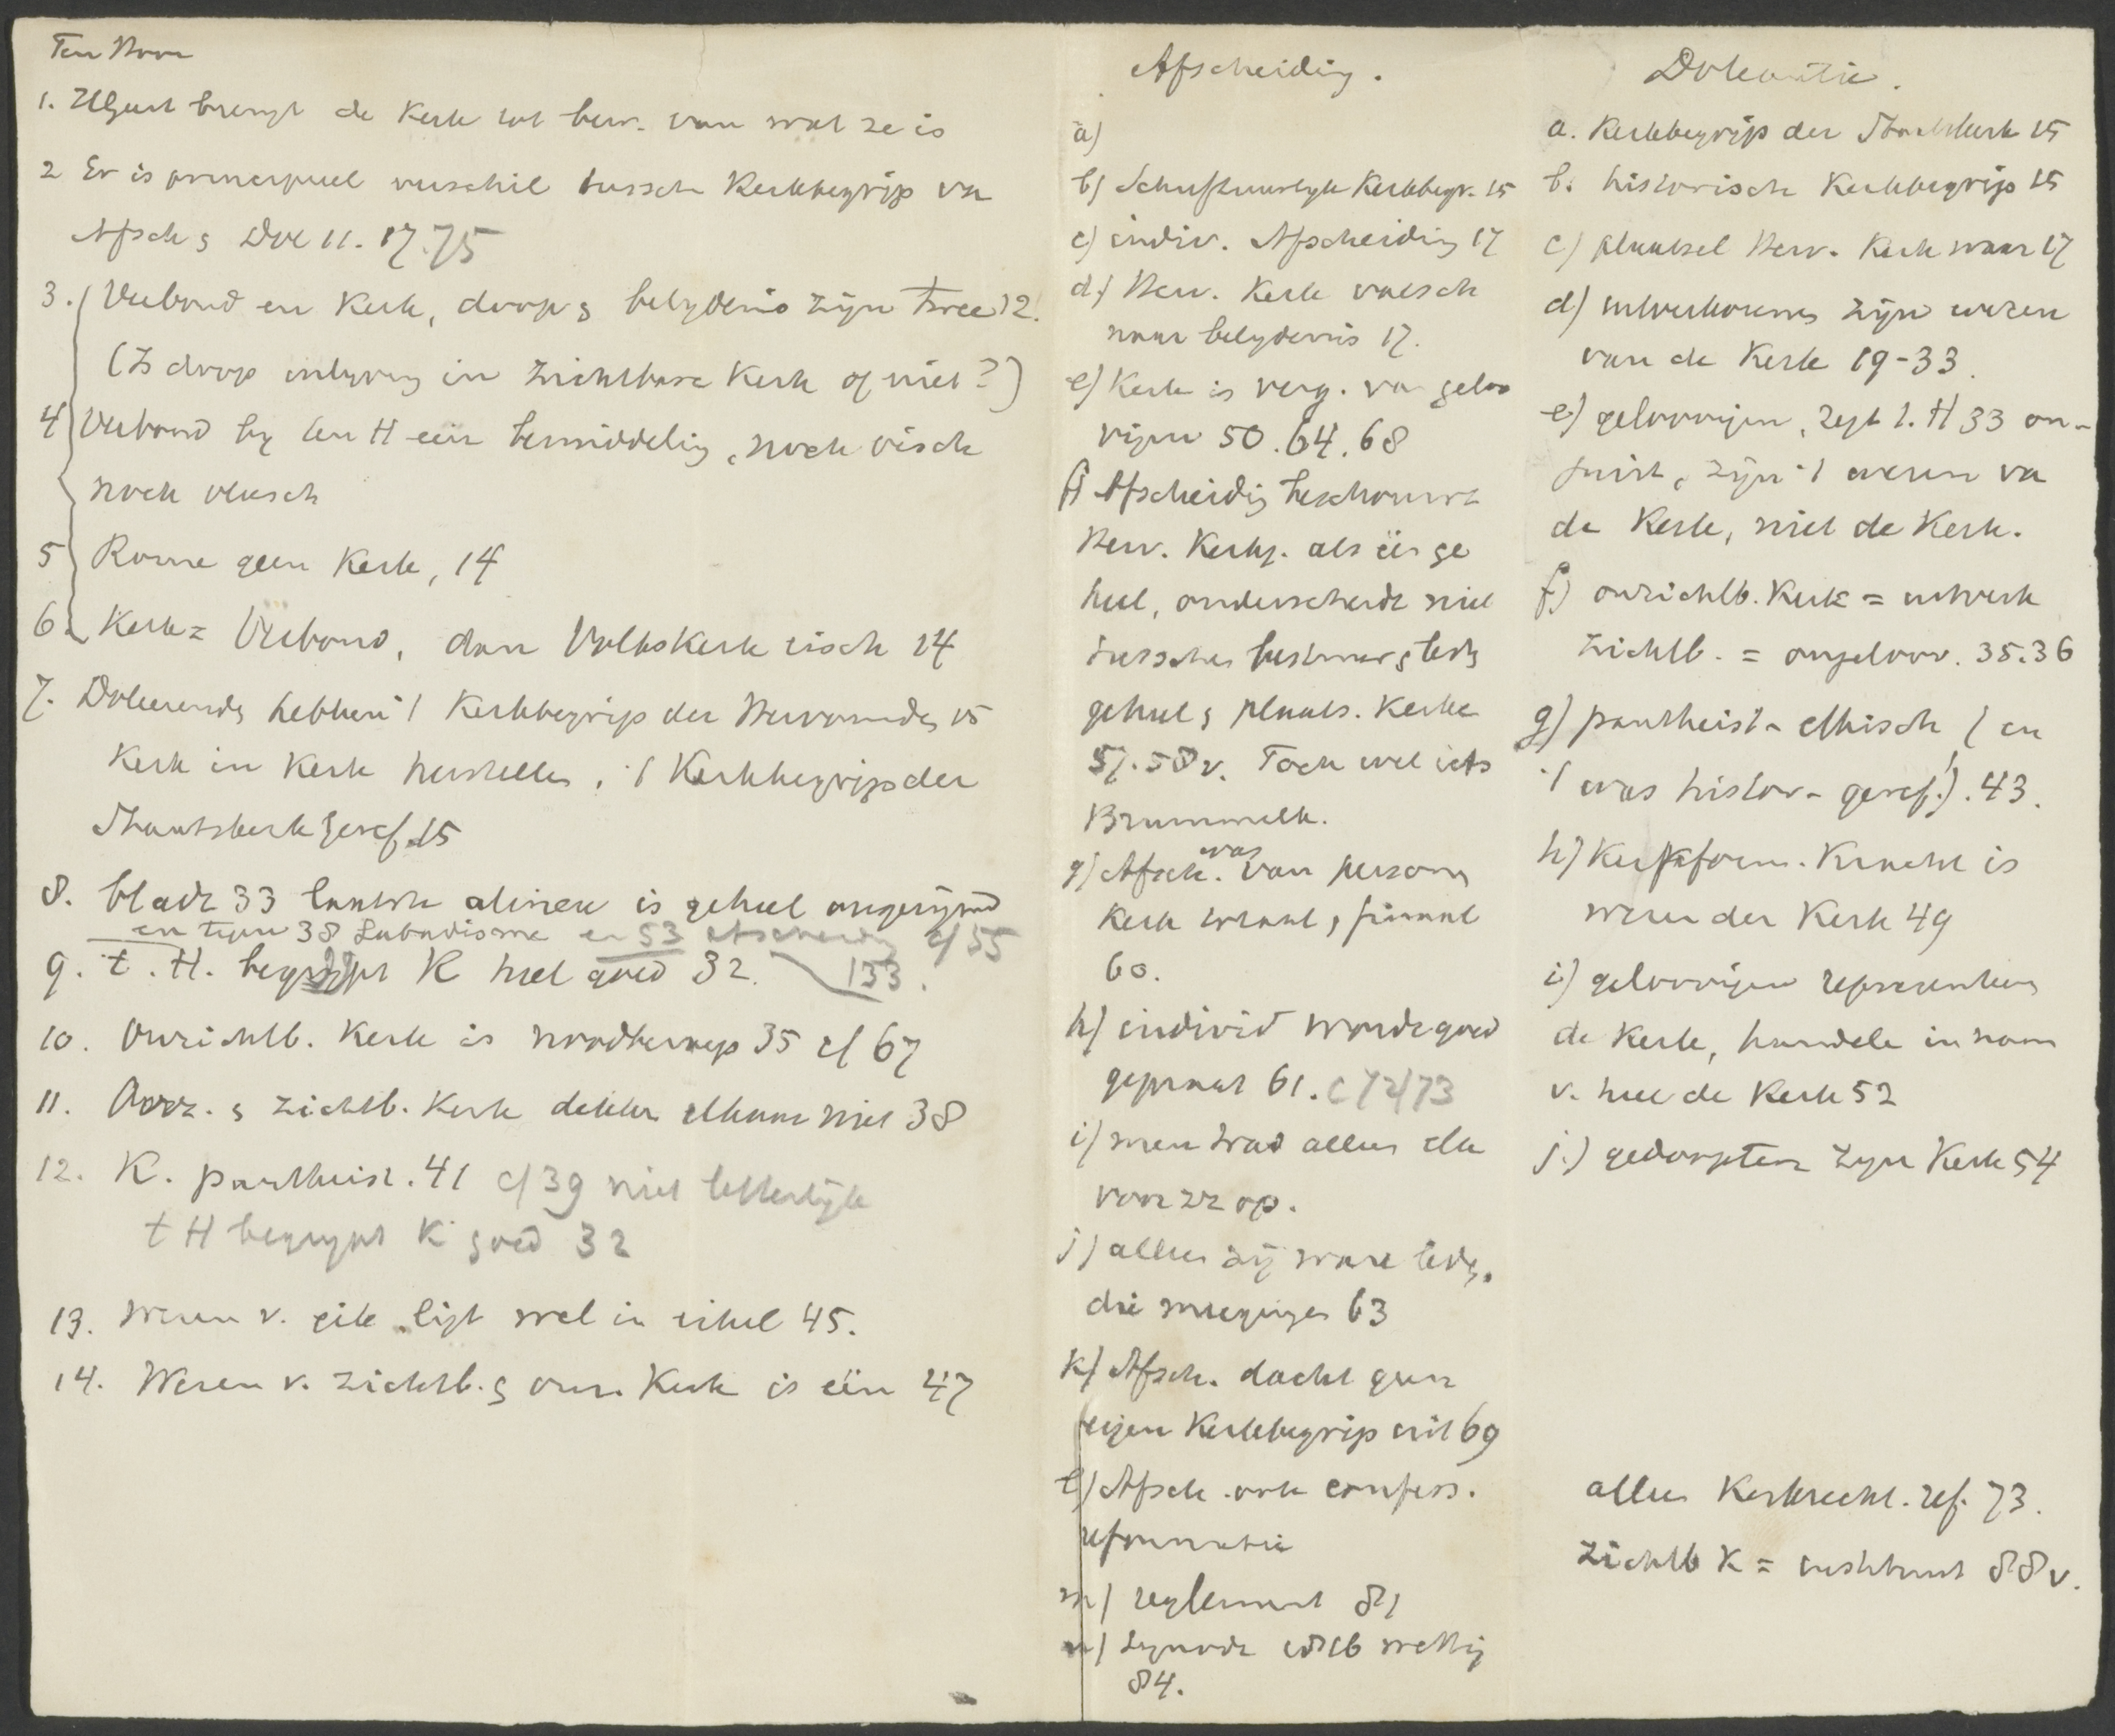 Ten Hoor
1. Twist brengt de Kerk tot bew. van wat ze is
2 Er is principieel verschil tussch Kerkbegrip vn
Afsch & Dol 11. 17. 75
3. Verbond en Kerk, doop & belydenis zijn twee 12.
(Is doop inlyving in zichtbare Kerk of niet?)
4 Verbond by ten H een bemiddelig, noch visch
noch vleesch
5 Rome geen Kerk, 14
6. Kerk = Verbond, dan Volkskerk eisch 14
7. Doleerende hebben 't Kerkbegrip der Hervormde 15
Kerk in Kerk herstelle, 't Kerkbegrip der
Staatskerk geref. 15
8. bladz 33 laatste alinea is geheel ongerijmd
en typen 38 Labadisme en 53 Afscheidg cf 55
9. t. H. begrypt K heel goed 32. 133.
10. Onzichtb. Kerk is noodbegrip 35 cf 67
11. Onz. & zichtb. Kerk dekke elkaar niet 38
12. K. pantheist. 41 cf 39 niet letterlijk
t H begrypt K goed 32
13. Wezen v. eik ligt wel in eikel 45.
14. Wezen v. zichtb. & onz. Kerk is één 47
Afscheiding.
a)
b) Schriftuurlyk Kerkbegr. 15
c) indiv. Afscheiding 17
d) Herv. Kerk valsch
naar belydenis 17.
e) Kerk is verg. van geloo
vigen 50. 64. 68
f) Afscheidig beschouwt
Herv. Kerkg. als één ge
heel, onderscheidt niet
tussche bestuur & leds
geheel & plaats. Kerke
57. 58 v. Toch wel iets
Brummelk.
g) Afsch. was van persoon
Kerk totaal, finaal
60.
h) individ wordt goed
gepraat 61. cf 72/73
i) men trad alleen elk
voor zz op.
j) alleen zij ware leds,
die meegingen 63
k) Afsch. dacht geen
eigen Kerkbegrip uit 69
l) Afsch. ook confess.
reformatie
m) reglement 81
n) Synode 1816 wettig
84.
Doleantie.
a. Kerkbegrip der Staatskerk 15
b. historisch Kerkbegrip 15
c) plaatsel Herv. Kerk waar 17
d) uitverkorenen zijn wezen
van de Kerk 19-33.
e) geloovigen, zegt t. H 33 on-
juist, zijn 't wezen va
de Kerk, niet de Kerk.
f) onzichtb. Kerk = uitverk
zichtb. = ongeloov. 35. 36
g) pantheist-ethisch (en
't was histor-geref!). 43.
h) Kerkform. Kracht is
wezen der Kerk 49
i) geloovigen representeren
de Kerk, handele in naam
v. heel de Kerk 52
j.) gedoopten zyn Kerk 54
alleen Kerkrecht. ref. 73.
zichtb K = instituut 88 v.